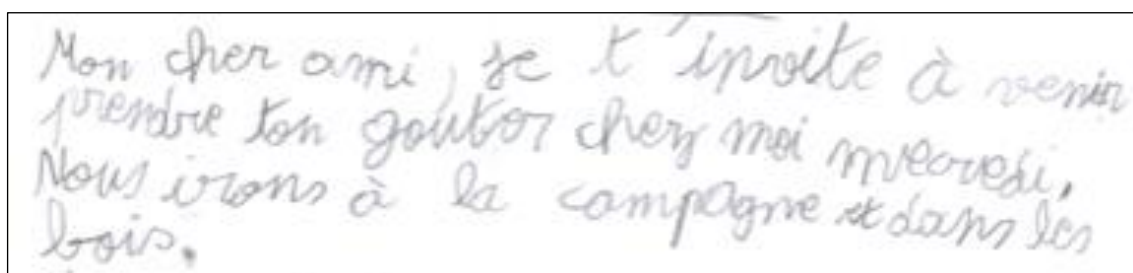 Mon cher ami, je t'invite à venir
prendre ton gouter chez moi mecredi.
Nous irons à la campagne et dans les
bois.